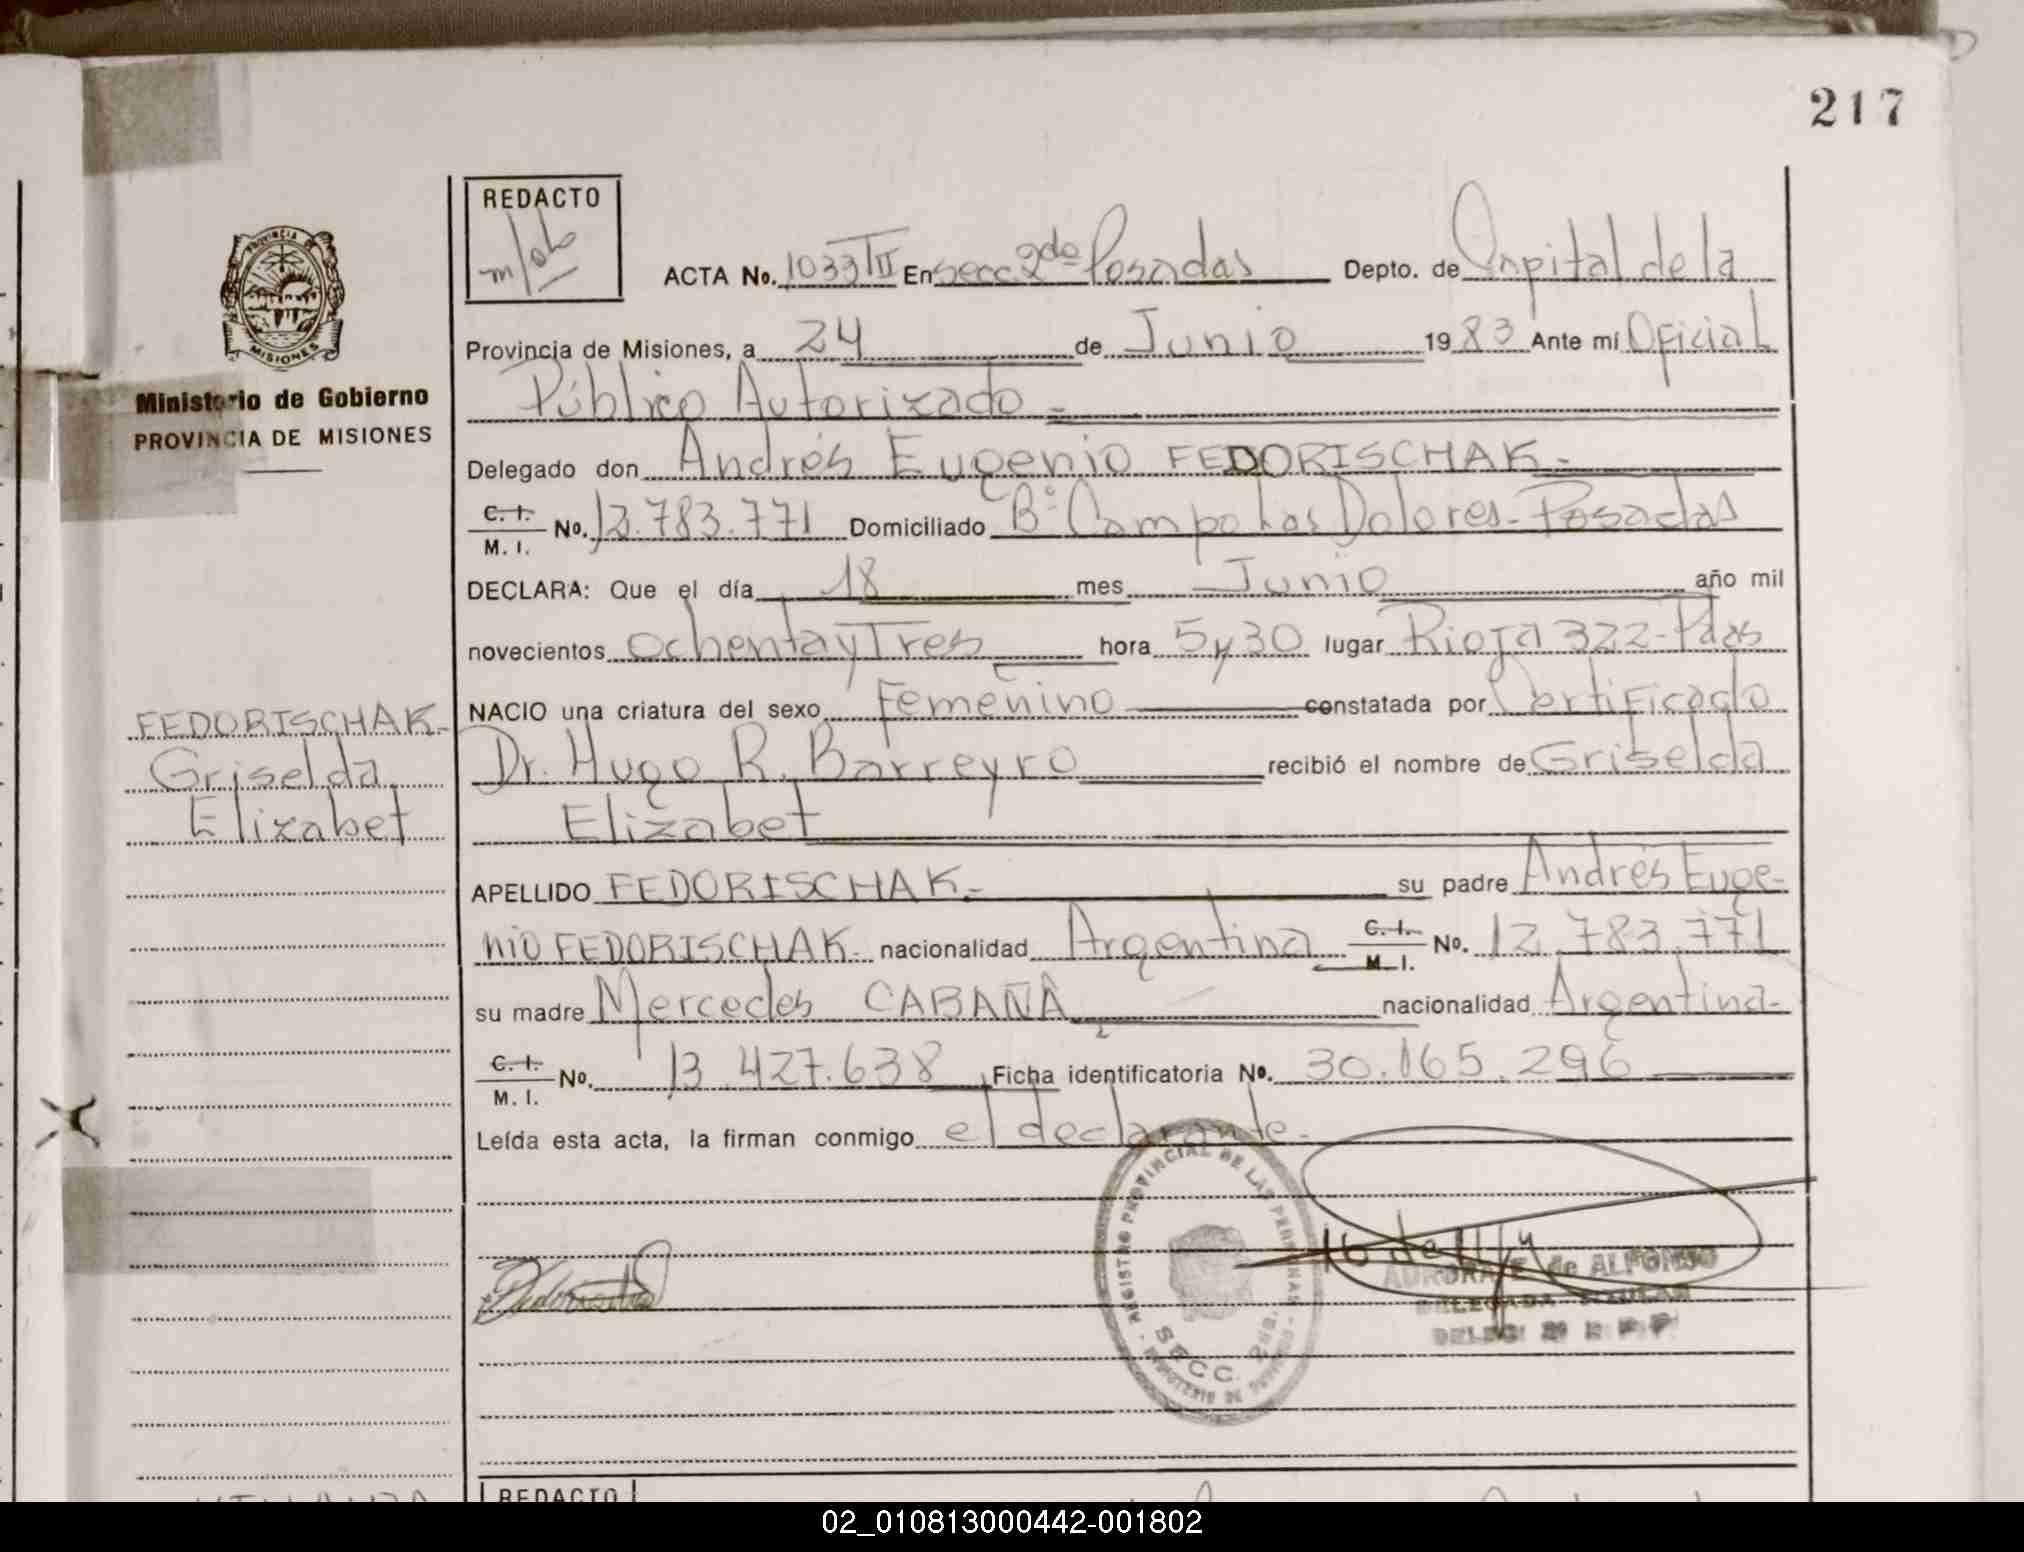 217
REDACTO
ACTA No. 1033 TII En secc. 2da Posadas Depto. de Capital de la
PROVINCIA DE
MISIONES
Provincia de Misiones, a 24 de Junio 1983 Ante mí Oficial
Ministerio de Gobierno
PROVINCIA DE MISIONES
Público Autorizado
Delegado don Andrés Eugenio FEDORISCHAK.-
C. I.
M. I. No. 12.783.771 Domiciliado B° Campo Las Dolores - Posadas
DECLARA: Que el día 18 mes Junio año mil
novecientos ochenta y Tres hora 5 y 30 lugar Rioja 322 - Pdas
NACIO una criatura del sexo Femenino constatada por Certificado
Dr. Hugo R. Barreyro recibió el nombre de Griselda
Elizabet
FEDORISCHAK.-
Griselda
Elizabet
APELLIDO FEDORISCHAK.- su padre Andrés Euge-
nio FEDORISCHAK.- nacionalidad Argentina C. I.
M. I. No. 12.783.771
su madre Mercedes CABAÑA nacionalidad Argentina-
C. I.
M. I. No. 13.427.638 Ficha identificatoria No. 30.165.296
Leída esta acta, la firman conmigo el declarante.-
REGISTRO PROVINCIAL DE LAS PERSONAS
SECC. 2da.
de ALFONSO
DELEGADA TITULAR
REDACTO
02_010813000442-001802